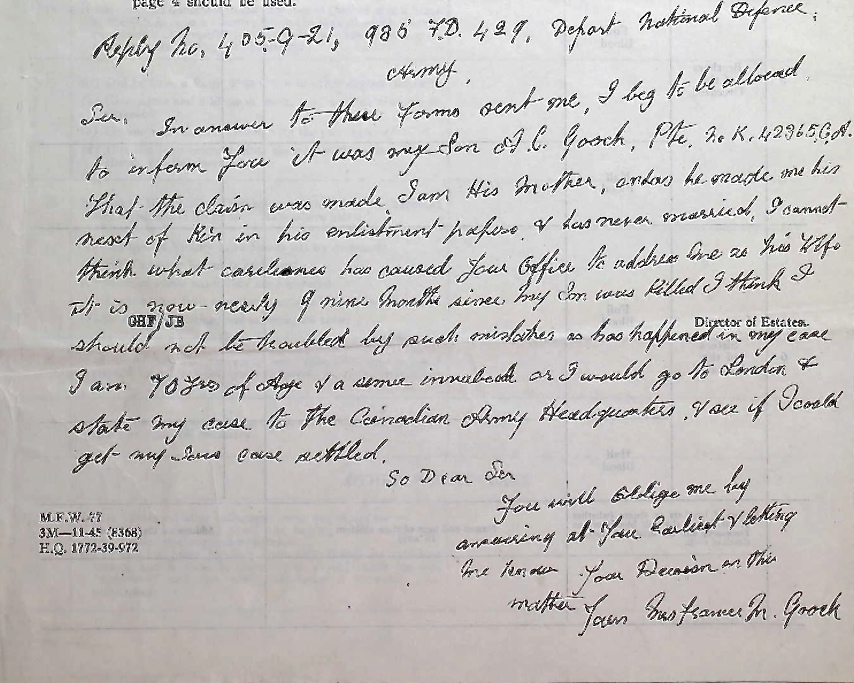 page 4 should be used.
Reply No, 405-G-21, 986 F.D. 429, Depart National Defence,
Army,
Sir, In answer to these forms sent me, I beg to be allowed
to inform You it was my Son A.C. Gooch, Pte, No K.42365, C.A.
that the claim was made I am His Mother, and as he made me his
next of Kin in his enlistment papers, & has never married, I cannot
think what careliness has caused Your Office to address me as his Wife
it is now nearly 9 nine Months since my Son was Killed I think I
GHF/JB
Director of Estates.
should not be troubled by such mistakes as has happened in my case
I am 70 yrs of Age & a semie invalead or I would go to London &
state my case to the Canadian Army Headquarters, & see if I could
get my Sons case settled.
So Dear Sir
You will oblige me by
answering at Your Earliest & letting
me know Your Decision on this
matter Yours Mrs Frances M. Gooch
M.F.W. 77
3M—11-45 (8368)
H.Q. 1772-39-972